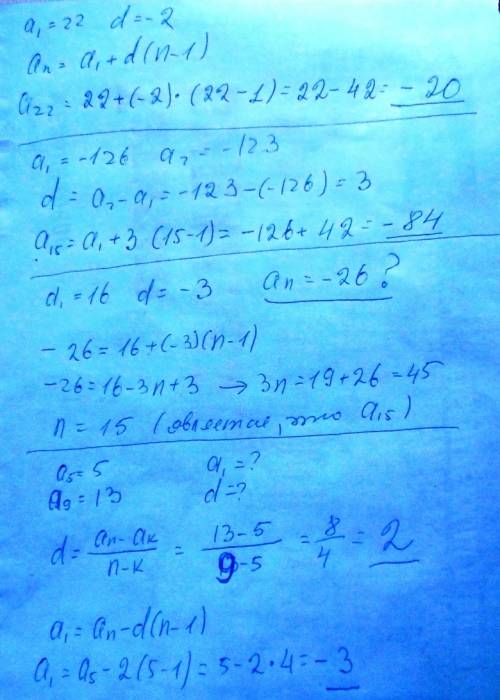 a₁ = 22 d = -2
aₙ = a₁ + d(n-1)
a₂₂ = 22 + (-2) · (22 - 1) = 22 - 42 = - 20
a₁ = -126 a₂ = -123
d = a₂ - a₁ = -123 - (-126) = 3
a₁₅ = a₁ + 3 (15-1) = -126 + 42 = - 84
d₁ = 16 d = -3 aₙ = -26 ?
- 26 = 16 + (-3)(n-1)
-26 = 16 - 3n + 3 → 3n = 19 + 26 = 45
n = 15 (является, это a₁₅)
a₅ = 5 a₁ = ?
a₉ = 13 d = ?
d = (aₙ - aₖ)/(n - k) = (13 - 5)/(9 - 5) = 8/4 = 2
a₁ = aₙ - d(n-1)
a₁ = a₅ - 2(5-1) = 5 - 2 · 4 = - 3